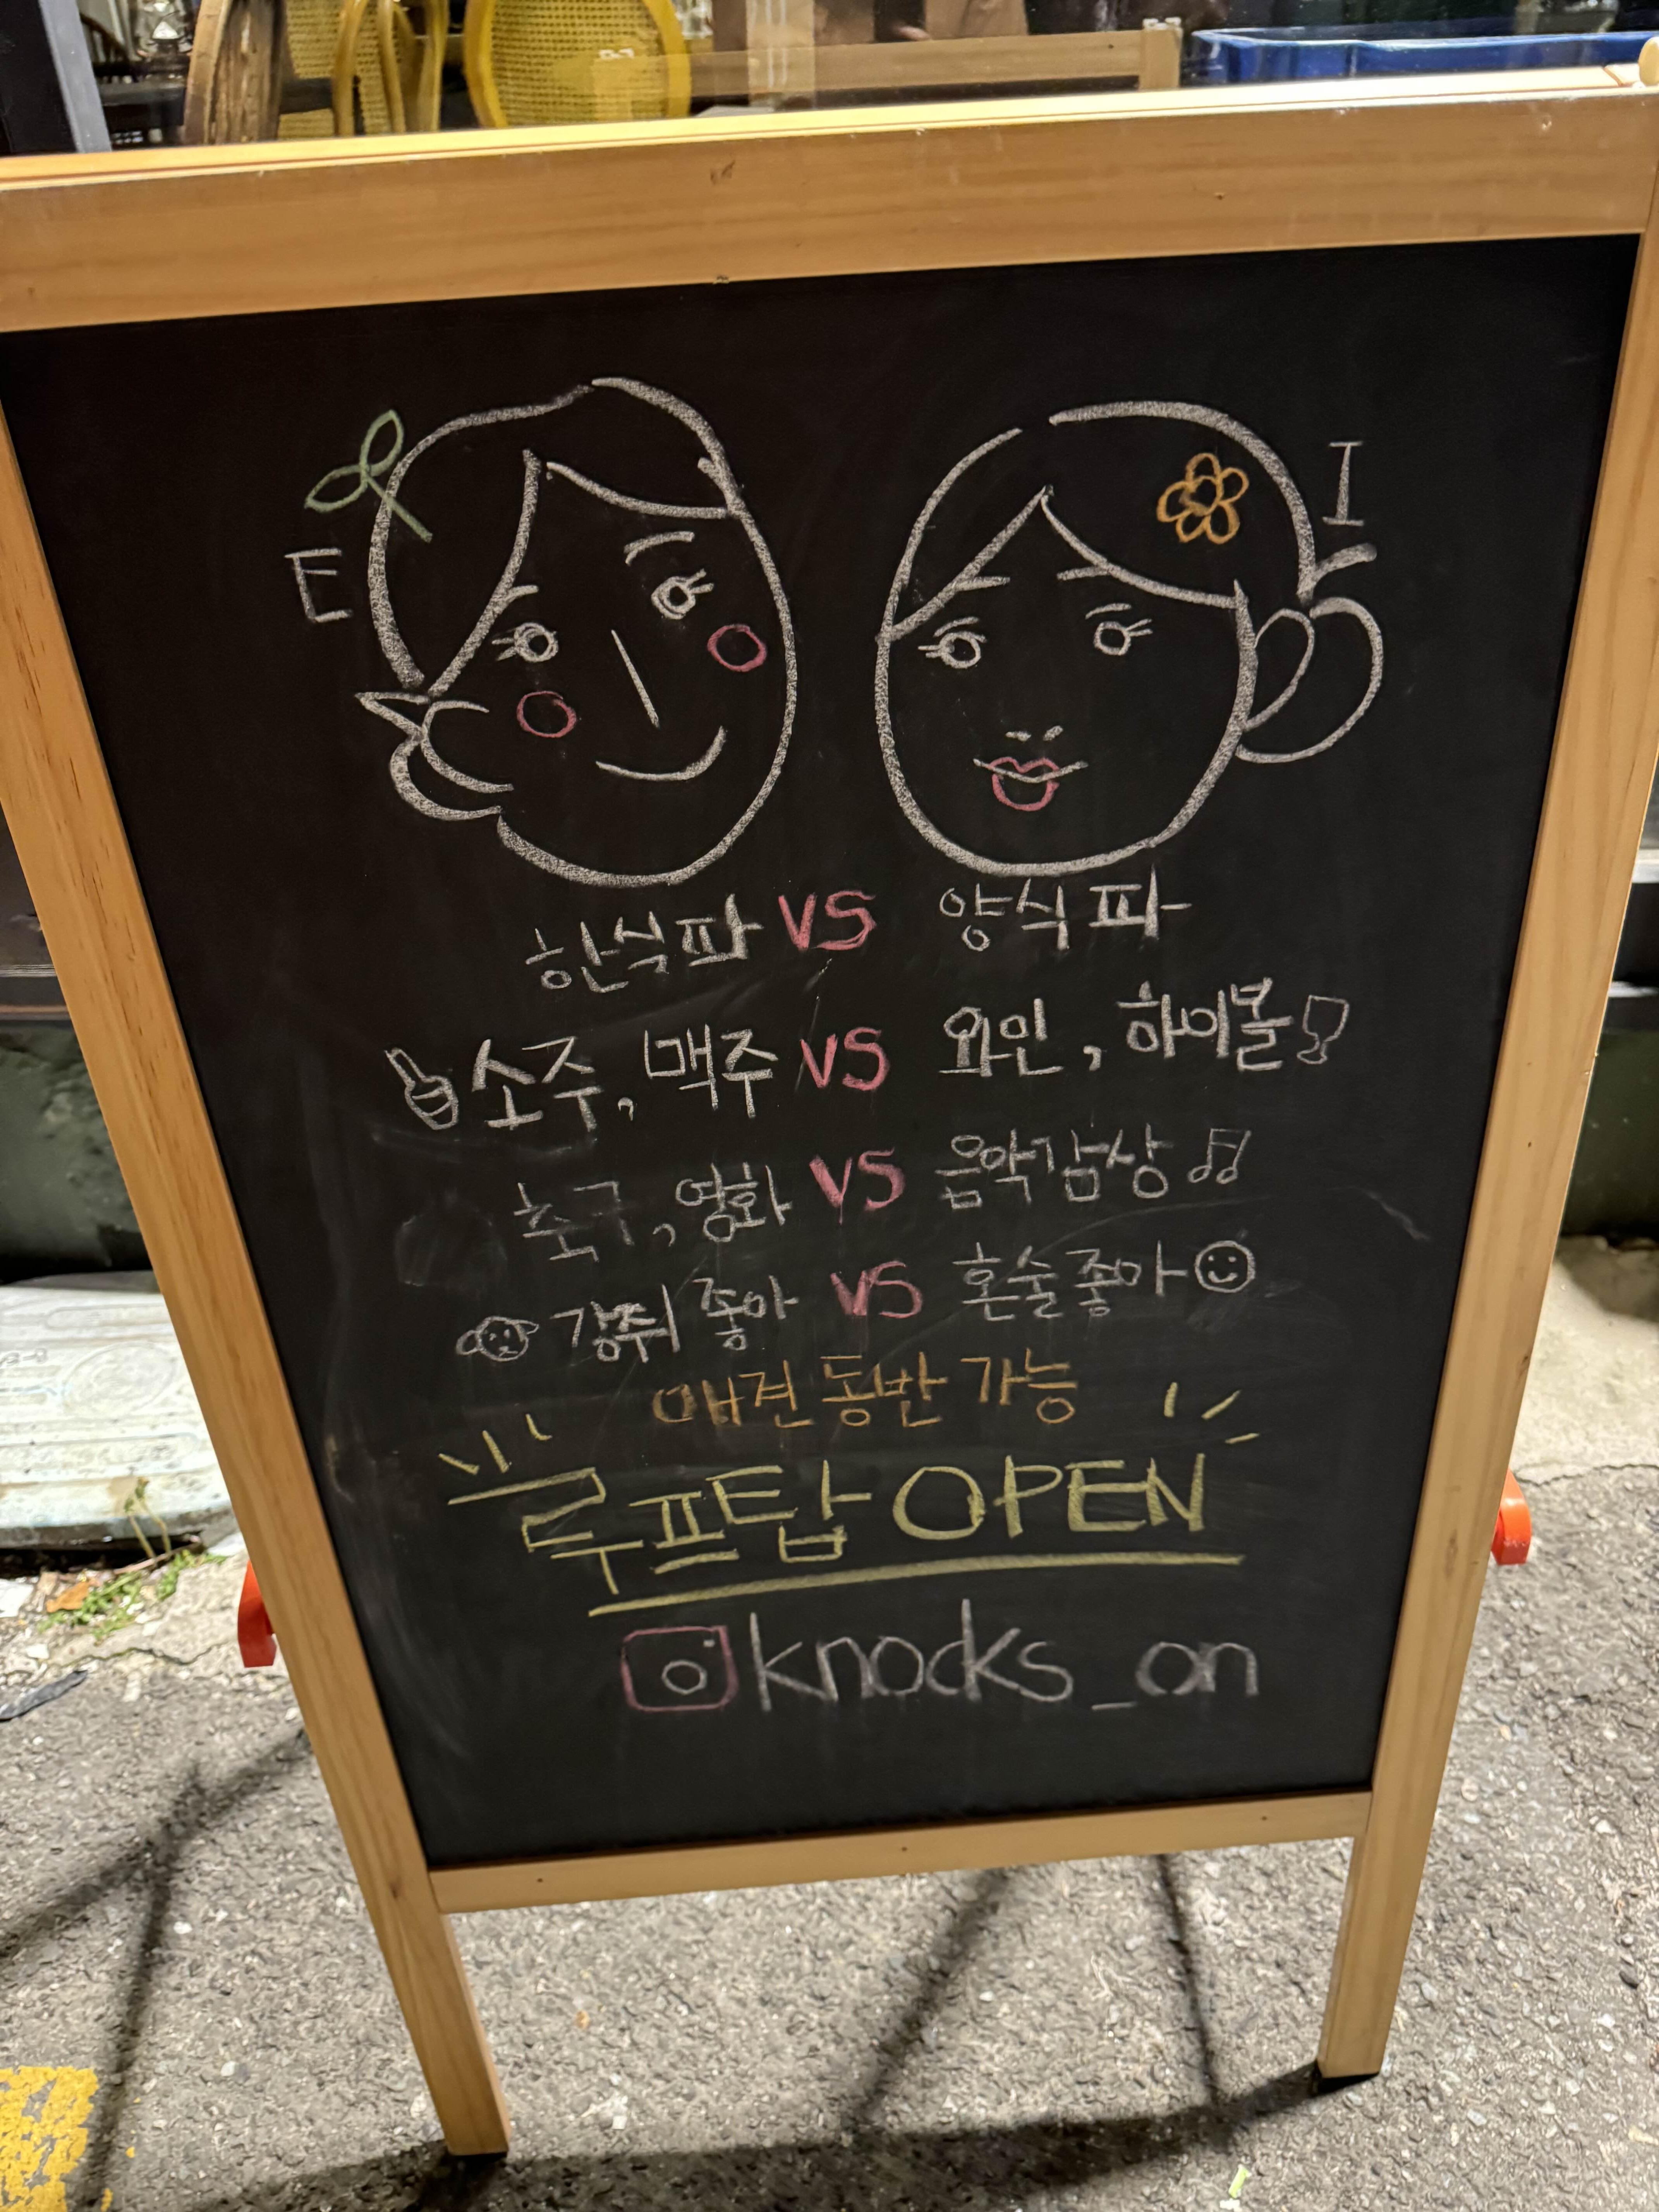 E
I
한식파 VS 양식파
소주, 맥주 VS 와인, 하이볼
축구, 영화 VS 음악감상
강쥐 좋아 VS 혼술좋아
애견 동반 가능
루프탑 OPEN
knocks_on